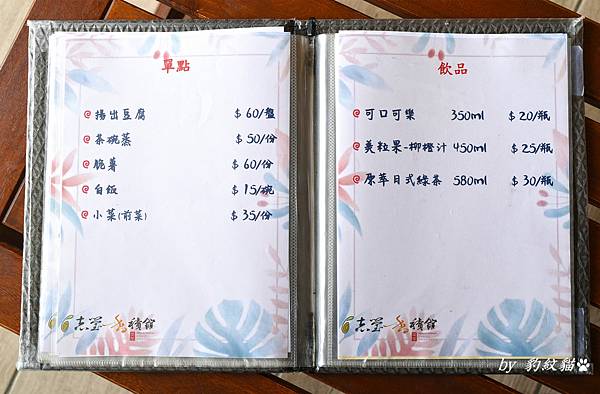 單點
@揚出豆腐 $60/盤
@茶碗蒸 $50/份
@脆薯 $60/份
@白飯 $15/碗
@小菜(前菜) $35/份
飲品
@可口可樂 350ml $20/瓶
@美粒果-柳橙汁 450ml $25/瓶
@原萃日式綠茶 580ml $30/瓶
by 豹紋貓